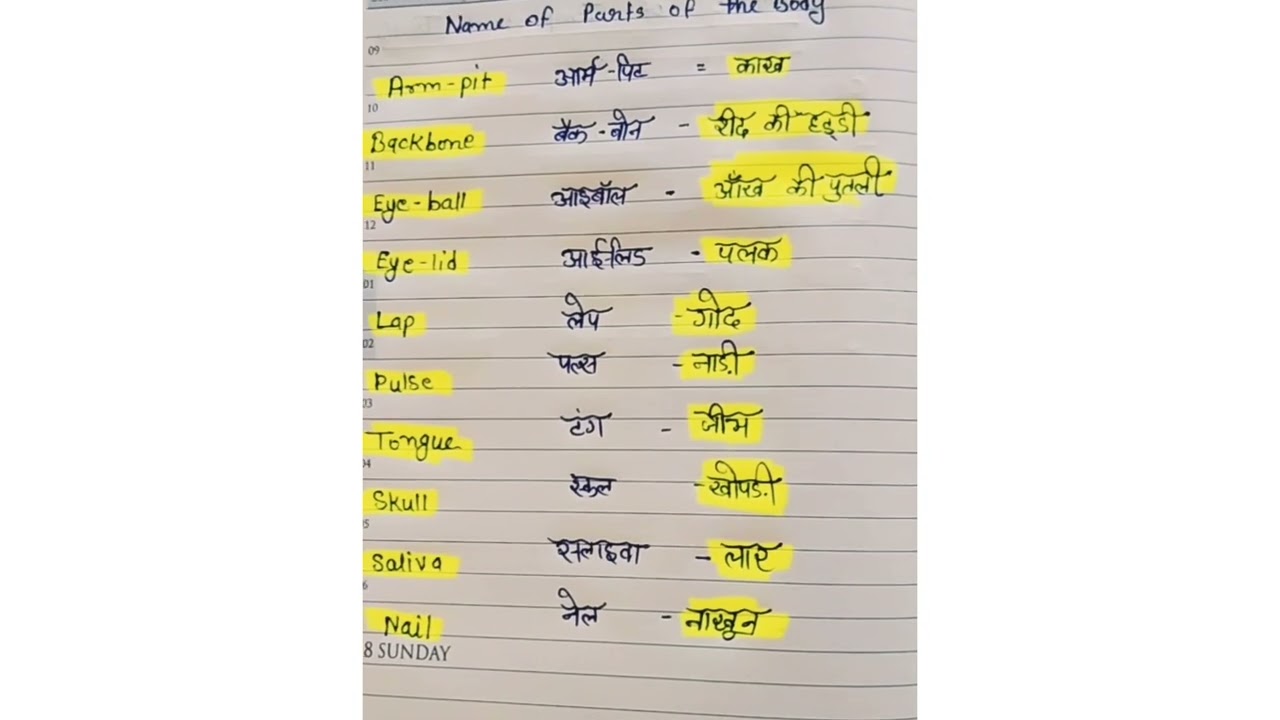 Name of Parts of the Body
09
Arm-pit आर्म-पिट = काख
10
Backbone बैक-बोन - रीद की हड्डी
11
Eye-ball आइबॉल - आँख की पुतली
12
Eye-lid आईलिड - पलक
01
Lap लेप - गोद
02
Pulse पल्स - नाड़ी
03
Tongue टंग - जीभ
04
Skull स्कल - खोपड़ी
5
Saliva स्लाइवा - लार
6
Nail नेल - नाखून
8 SUNDAY